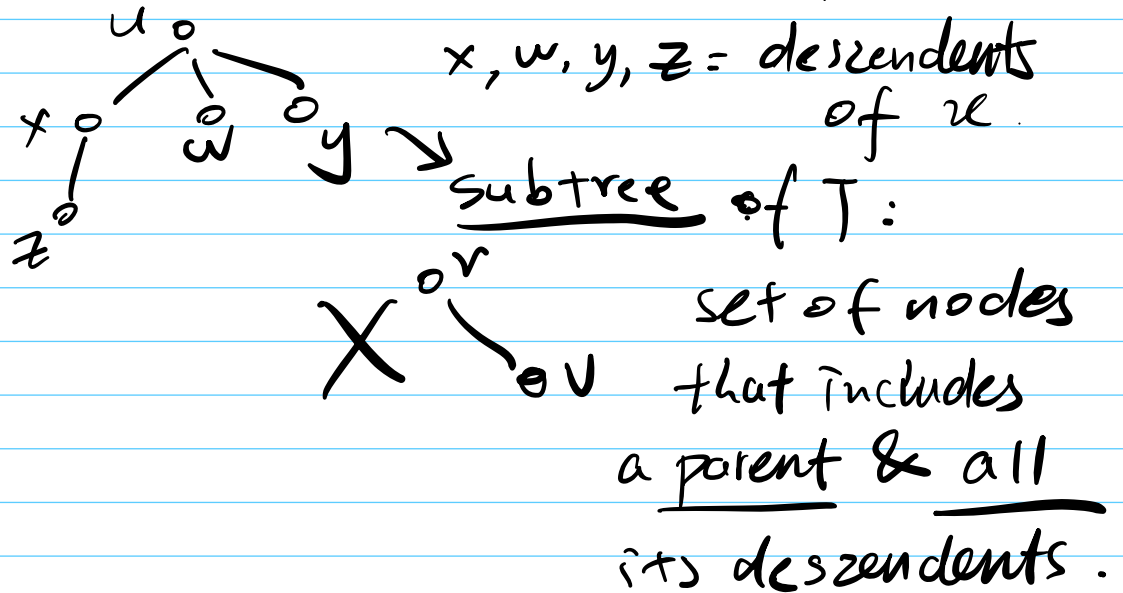 u
x, w, y, z = deszendents
of u.
x
w
y
subtree of T:
z
r
set of nodes
X
v
that includes
a parent & all
its deszendents.